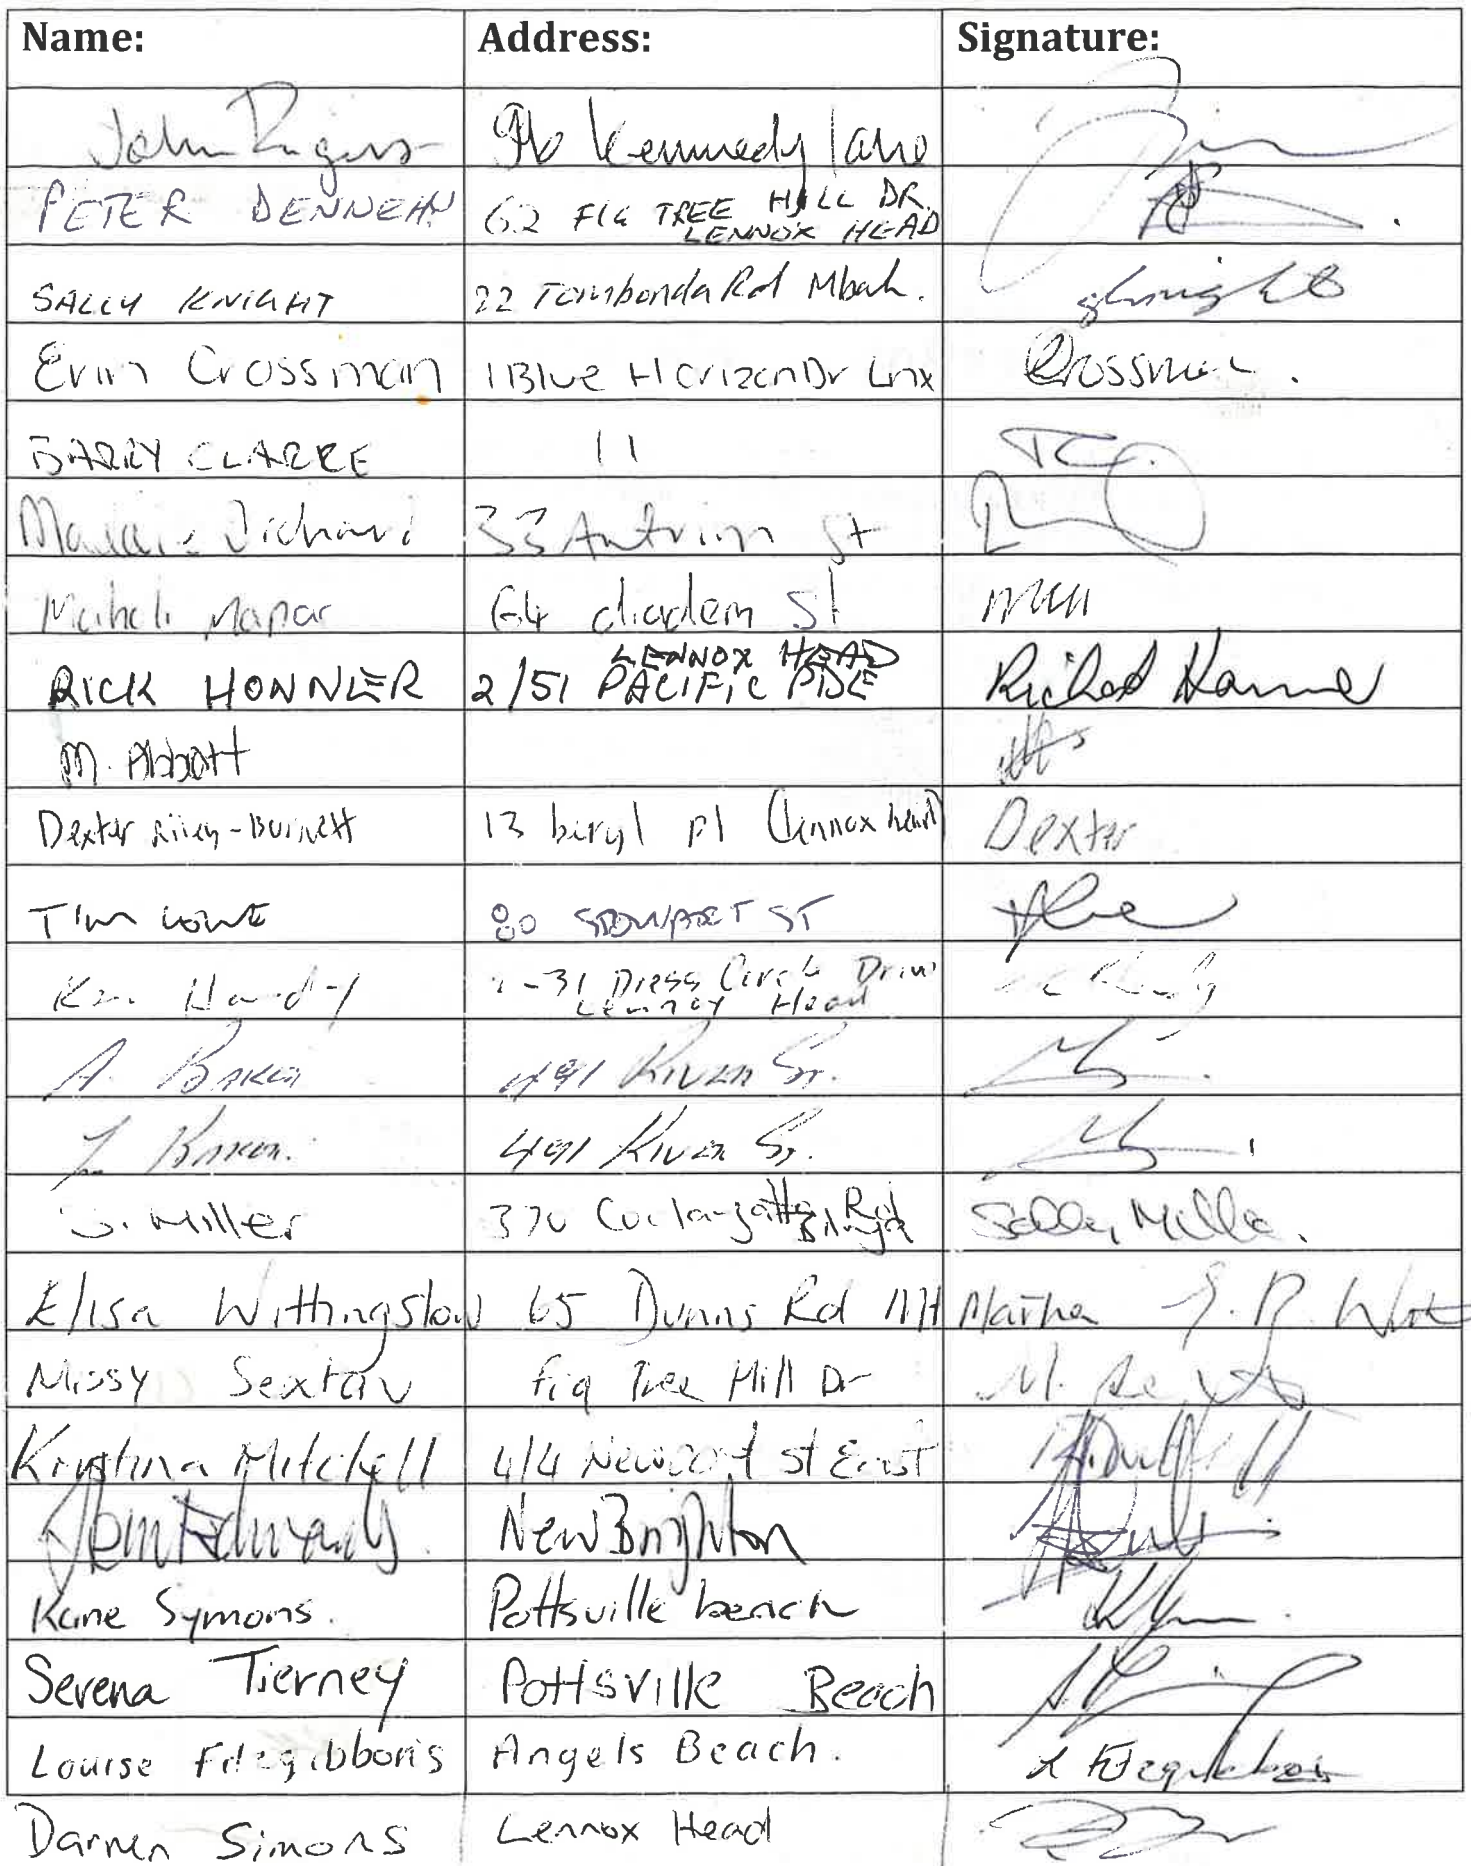 Name: Address: Signature:
John Rogers 90 Kennedy lane
PETER DENNEHY 62 FIG TREE HILL DR.
LENNOX HEAD
SALLY KNIGHT 22 Tombonda Rd Mbah. Sknight
Erin Crossman 1 Blue Horizon Dr Lnx Crossman.
BARRY CLARKE 11
33 Antrim St
Mapar 64 diadem St
LENNOX HEAD
RICK HONNER 2/51 PACIFIC PDE Richard Honner
M. Abbott
Dexter Riley-Burnett 13 beryl pl (lennox head) Dexter
Tim LOWE 80 ST
Ken Hardy -31 Dress Circle Drive
Lennox Head
A. BAKER 491 RIVER ST.
L BAKER. 491 RIVER ST.
S. Miller 370 Coolangatta Rd
Bilinga Sally Miller.
Elisa Withingslow 65 Dunns Rd Mt Martha
Missy Sexton Fig Tree Hill Dr M. Sexton
Kristina Mitchell 4/4 Newport St East
Edwards. New Brighton
Kane Symons. Pottsville beach
Serena Tierney Pottsville Beach
Louise Fitzgibbons Angels Beach. L Fitzgibbons
Darren Simons Lennox Head